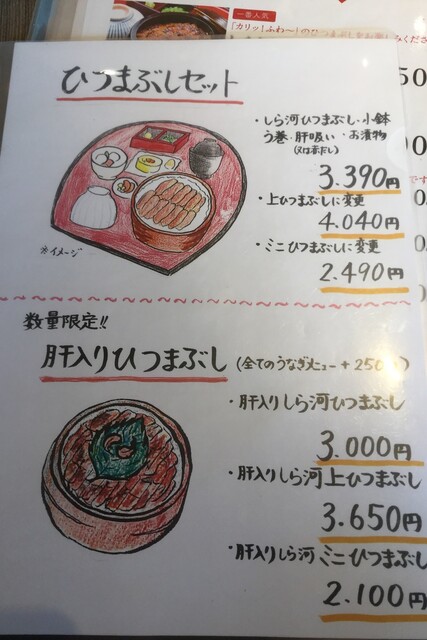 一番人気
「カリッ！ふわ〜」の
ひつまぶしセット
・しら河ひつまぶし・小鉢
う巻・肝吸い・お漬物
(又は赤だし)
3.390円
・上ひつまぶしに変更
4.040円
・ミニひつまぶしに変更
2.490円
※イメージ
数量限定!!
肝入りひつまぶし (全てのうなぎメニュー +250円)
・肝入りしら河ひつまぶし
3.000円
・肝入りしら河上ひつまぶし
3.650円
・肝入りしら河ミニひつまぶし
2.100円